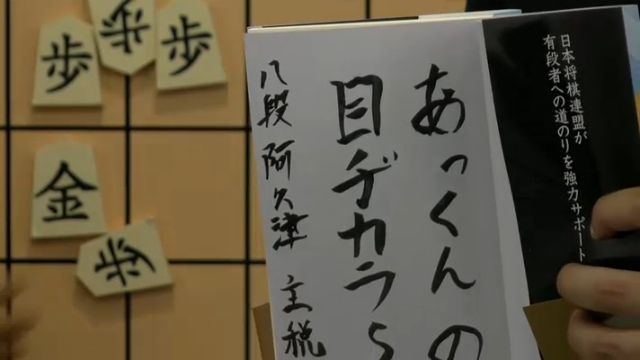 あっくんの
目ヂカラ
八段 阿久津 主税
日本将棋連盟が
有段者への道のりを強力サポート
歩
歩
歩
金
歩